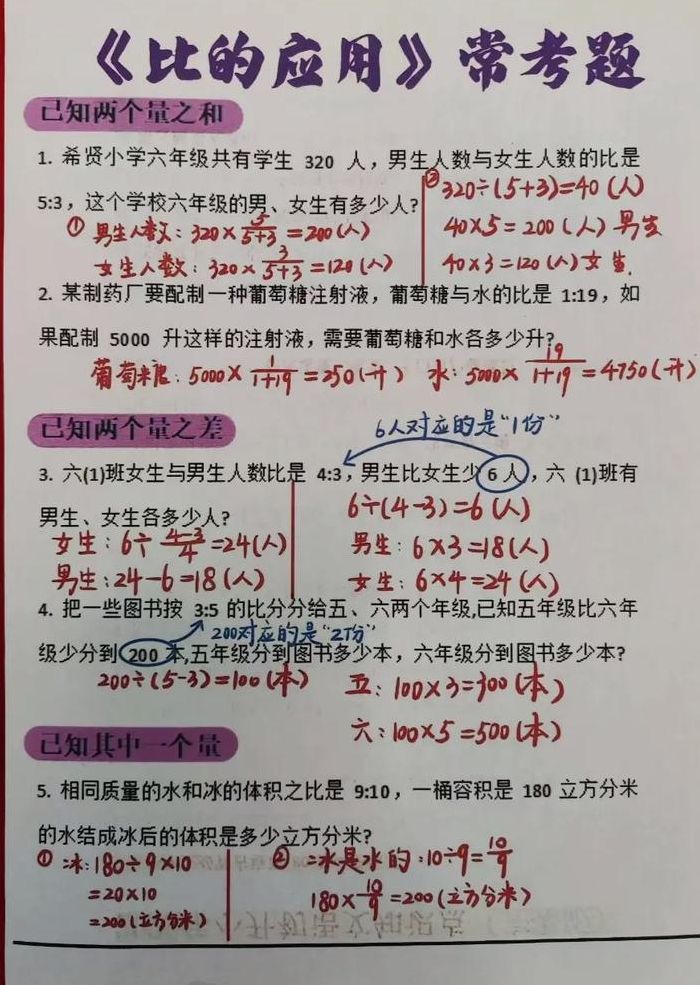 《比的应用》常考题
已知两个量之和
1. 希贤小学六年级共有学生 320 人，男生人数与女生人数的比是
5:3，这个学校六年级的男、女生有多少人?
① 男生人数: 320×5/(5+3)=200(人)
女生人数: 320×3/(5+3)=120(人)
② 320÷(5+3)=40(人)
40×5=200(人)男生
40×3=120(人)女生.
2. 某制药厂要配制一种葡萄糖注射液，葡萄糖与水的比是 1:19，如
果配制 5000 升这样的注射液，需要葡萄糖和水各多少升?
葡萄糖: 5000×1/(1+19)=250(升) 水: 5000×19/(1+19)=4750(升)
已知两个量之差
6人对应的是"1份"
3. 六(1)班女生与男生人数比是 4:3，男生比女生少 6 人，六 (1)班有
男生、女生各多少人?
女生: 6÷(4-3)/4=24(人)
男生:24-6=18(人)
6÷(4-3)=6(人)
男生: 6×3=18(人)
女生: 6×4=24(人)
4. 把一些图书按 3:5 的比分分给五、六两个年级,已知五年级比六年
200对应的是"2份"
级少分到 200 本,五年级分到图书多少本，六年级分到图书多少本?
200÷(5-3)=100(本)
五: 100×3=300(本)
六: 100×5=500(本)
已知其中一个量
5. 相同质量的水和冰的体积之比是 9:10，一桶容积是 180 立方分米
的水结成冰后的体积是多少立方分米?
① 冰:180÷9×10
=20×10
=200(立方分米)
② 冰是水的:10÷9=10/9
180×10/9=200(立方分米)